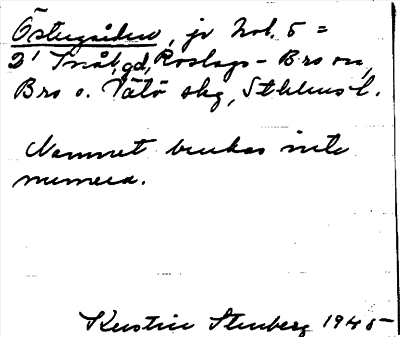 Östergården, jr Not. 5 =
2¹ Snåt, gd, Roslags-Bro sn,
Bro o. Vätö skg, Sthlms l.
Namnet brukas inte
numera.
Kerstin Stenberg 1945